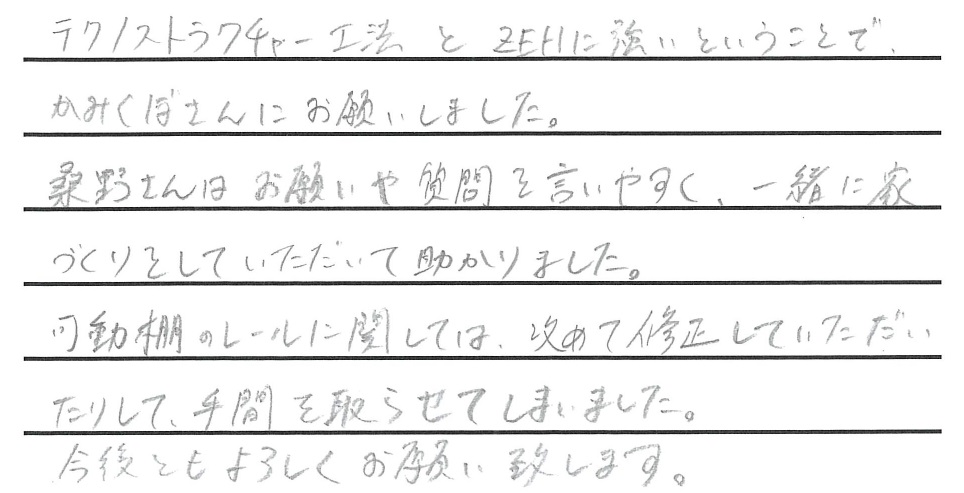 テクノストラクチャー工法 と ZEHに強いということで、
かみくぼさんにお願いしました。
桑野さんはお願いや質問を言いやすく、一緒に家
づくりをしていただいて助かりました。
可動棚のレールに関しては、改めて修正していただい
たりして、手間を取らせてしまいました。
今後ともよろしくお願い致します。